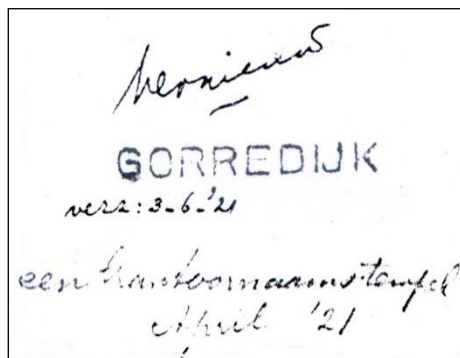 vernieuwd
GORREDIJK
verz: 3-6-'21
een kantoornaamstempel
April '21